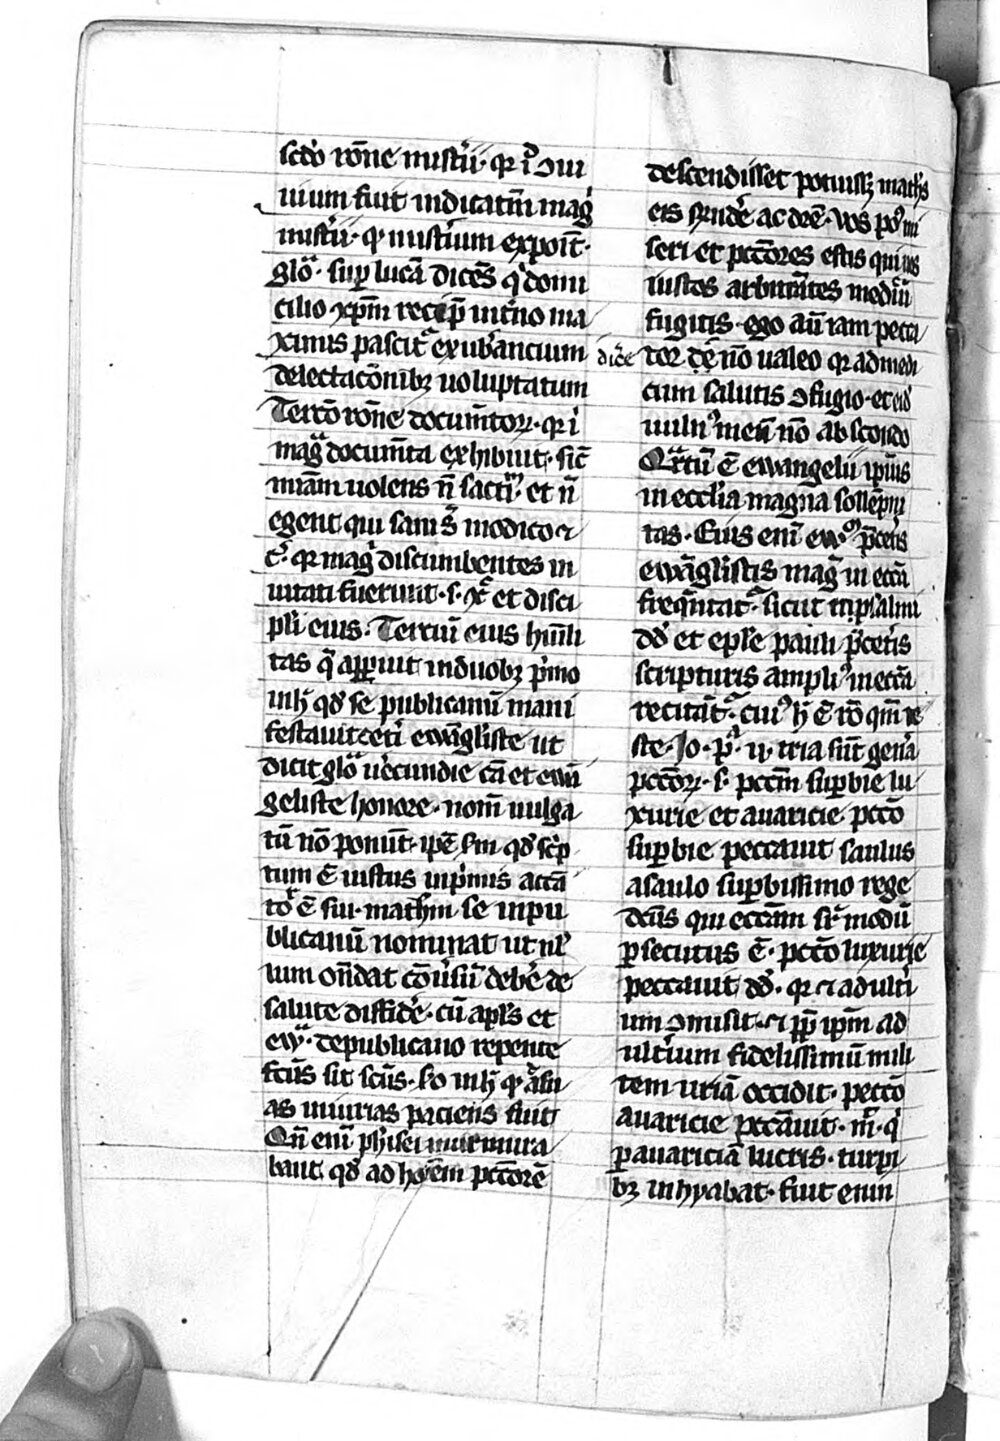 scdo rōne misterii · qr ī ↄui
uium fuit indicatm mag
misterii · qd misterium exponit ·
glo · sup lucā dicēs qd domi
cilio xpm recip interno ma
ximis pascit exuberancium
delectacōnibꝫ uoluptatum
Tercō rōne documētoꝝ · qr ī
mag documēta exhibuit · sic
miam uolens n̄ sacri et n̄
egent qui sani s̄ medico ⁊
c · qr mag discumbentes in
uitati fuerunt · s · xc et disci
puli eius · Terciū eius humili
tas q apparuit in duobꝫ primo
in h qd se publicanū mani
festauit ceti ewāgliste ut
dicit glo uerecundie cā et ewā
geliste honore · nom uulga
tū nō ponūt · ipe sm qd scrip
tum ē iustus in primis accu
tor ē sui · matheū se in pu
blicanū nominat ut nul
lum ondat cōuersū debere de
salute diffidere · cū apls et
ew · de publicano repente
fcūs sit scūs · so in h
as iniurias paciens fuit
Qn enī pharisei murmura
bant · qd ad hoiem pccorē
descendisset potuisꝫ matheus
eis respondere ac dicere · vos po mi
seri et pccores estis qui uos
iustos arbitrātes medicū
fugitis · ego aū iam pecca
dice tor nō ualeo qr ad medi
cum salutis ↄfugio · et ei
uuln meū nō abscondo
Quartū ē ewangelii ipius
in ecclia magna sollēpni
tas · Eius enī ew p ceteris
ewāglistis mag in eccā
frequentat sicut in psalmi
dd et eple pauli p ceteris
scripturis ampli in eccā
recitāt · cui h ē rō qm te
ste · Jo · p · ij · tria sūt genera
pccoꝝ · s · pccm superbie lu
xurie et auaricie pccō
superbie peccauit saulus
a saulo superbissimo rege
dcūs qui eccam supra modū
persecutus ē · pccō luxurie
peccauit dd · qr ⁊ adulteri
um ↄmisit · ⁊ ppter ipm ad
ulterium fidelissimū mili
tem uriā occidit · pccō
auaricie peccauit · m · q
per auariciā lucris · turpi
bꝫ inhyabat · fuit enim